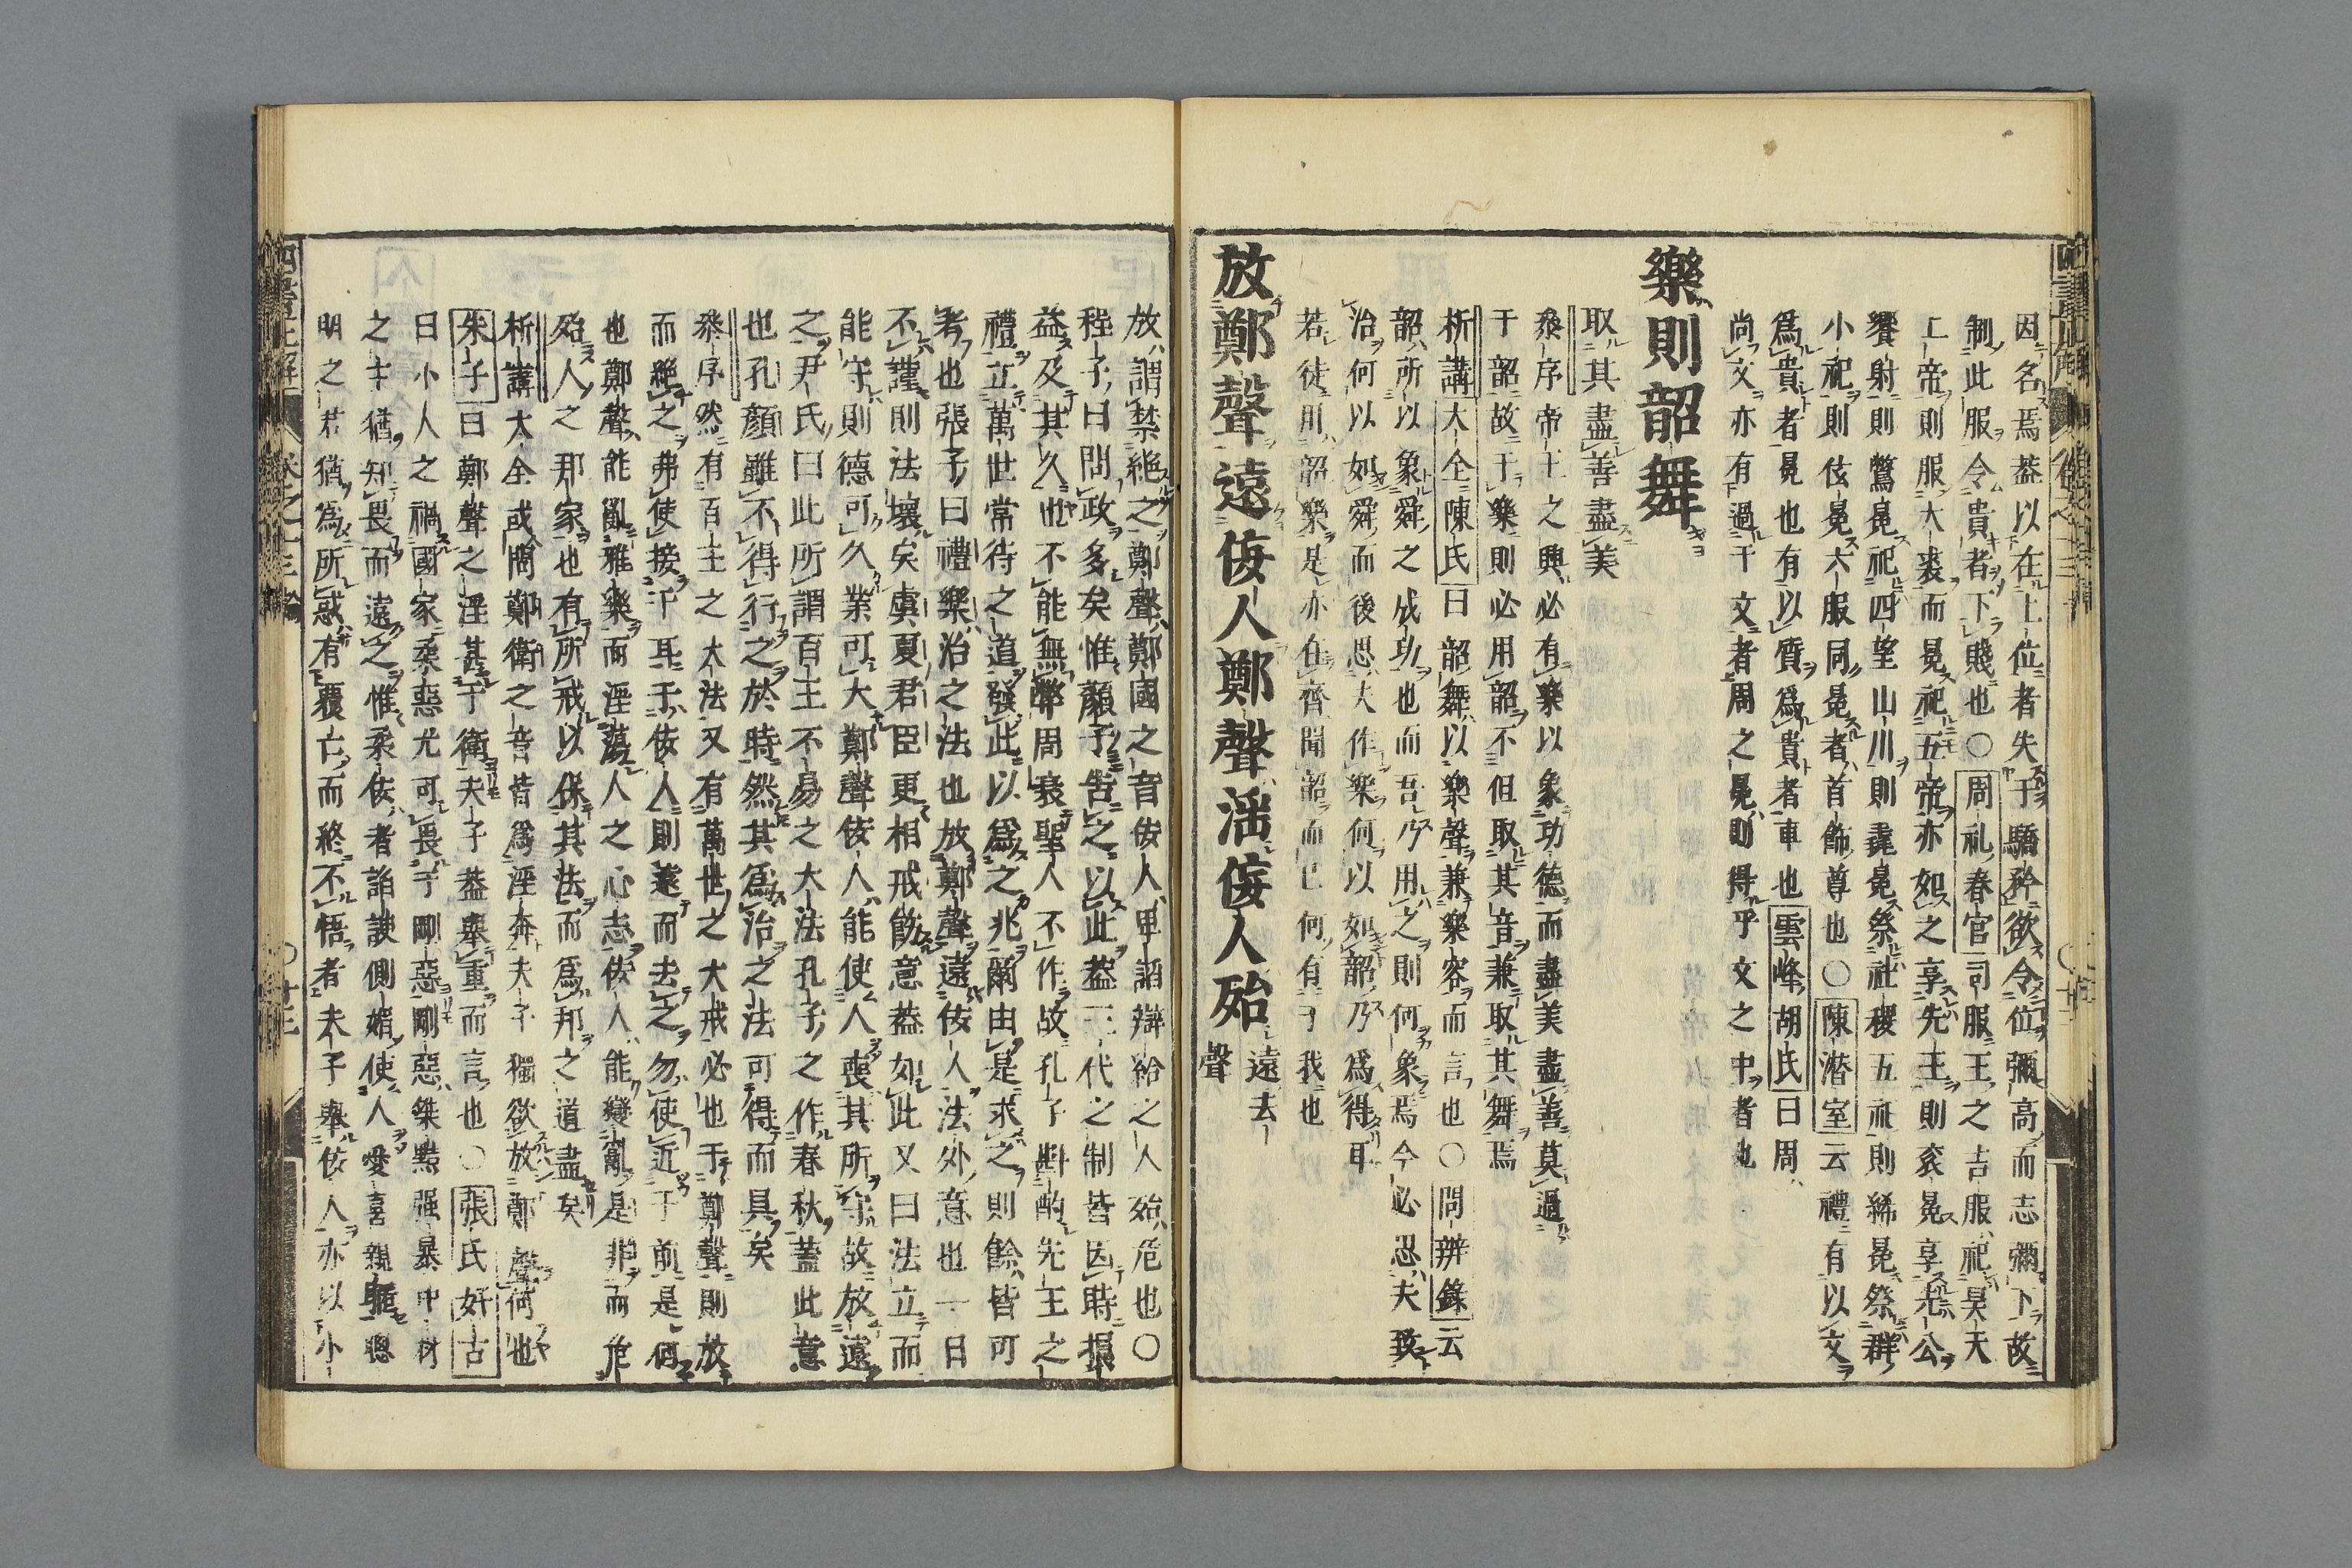 因名焉葢以在上位者失于驕矜欲令位彌高而志彌下故
制此服令貴者下賤也○周礼春官司服王之吉服祀昊天
上帝則服大裘而冕祀五帝亦如之享先王則衮冕享先公
饗射則鷩冕祀四望山川則毳冕祭社稷五祀則絺冕祭群
小祀則伭冕六服同冕者首飾尊也○陳潛室云禮有以文
爲貴者冕也有以質爲貴者車也雲峰胡氏曰周
尚文亦有過于文者周之冕則得乎文之中者也
樂則韶舞
取其盡善盡美
叅序帝王之興必有樂以象功德而盡美盡善莫過
于韶故于樂則必用韶不但取其音兼取其舞焉
析講大全陳氏曰韶舞以樂聲兼樂容而言也○問辨錄云
韶所以象舜之成功也而吾乃用之則何象焉今必思夫致
治何以如舜而後思夫作樂何以如韶乃爲得耳
若徒用韶樂是亦在齊聞韶而已何有于我也
放鄭聲遠佞人鄭聲淫佞人殆 遠去聲
放謂禁絶之鄭聲鄭國之音佞人卑諂辯給之人殆危也○
程子曰問政多矣惟顏子告之以此葢三代之制皆因時損
益及其久也不能無弊周衰聖人不作故孔子斟酌先王之
禮立萬世常行之道發此以爲之兆爾由是求之則餘皆可
考也張子曰禮樂治之法也放鄭聲遠佞人法外意也一日
不謹則法壞矣虞夏君臣更相戒飭意葢如此又曰法立而
能守則德可久業可大鄭聲佞人能使人喪其所守故放遠
之尹氏曰此所謂百王不易之大法孔子之作春秋蓋此意
也孔顏雖不得行之於時然其爲治之法可得而具矣
叅序然有百王之大法又有萬世之大戒必也于鄭聲則放
而絶之弗使接于耳于佞人則遠而去之勿使近于前是何
也鄭聲能亂雅樂而淫蕩人之心志佞人能變亂是非而危
殆人之邦家也有所戒以保其法而爲邦之道盡矣
析講大全或問鄭衛之音皆爲淫奔夫子獨欲放鄭聲何也
朱子曰鄭聲之淫甚于衛夫子葢舉重而言也○張氏好古
曰小人之禍國家柔惡尤可畏于剛惡剛惡桀黠强暴中材
之主猶知畏而遠之惟柔佞者諂諛側媚使人愛喜親暱聰
明之君猶爲所惑有覆亡而終不悟者夫子舉佞人亦以小